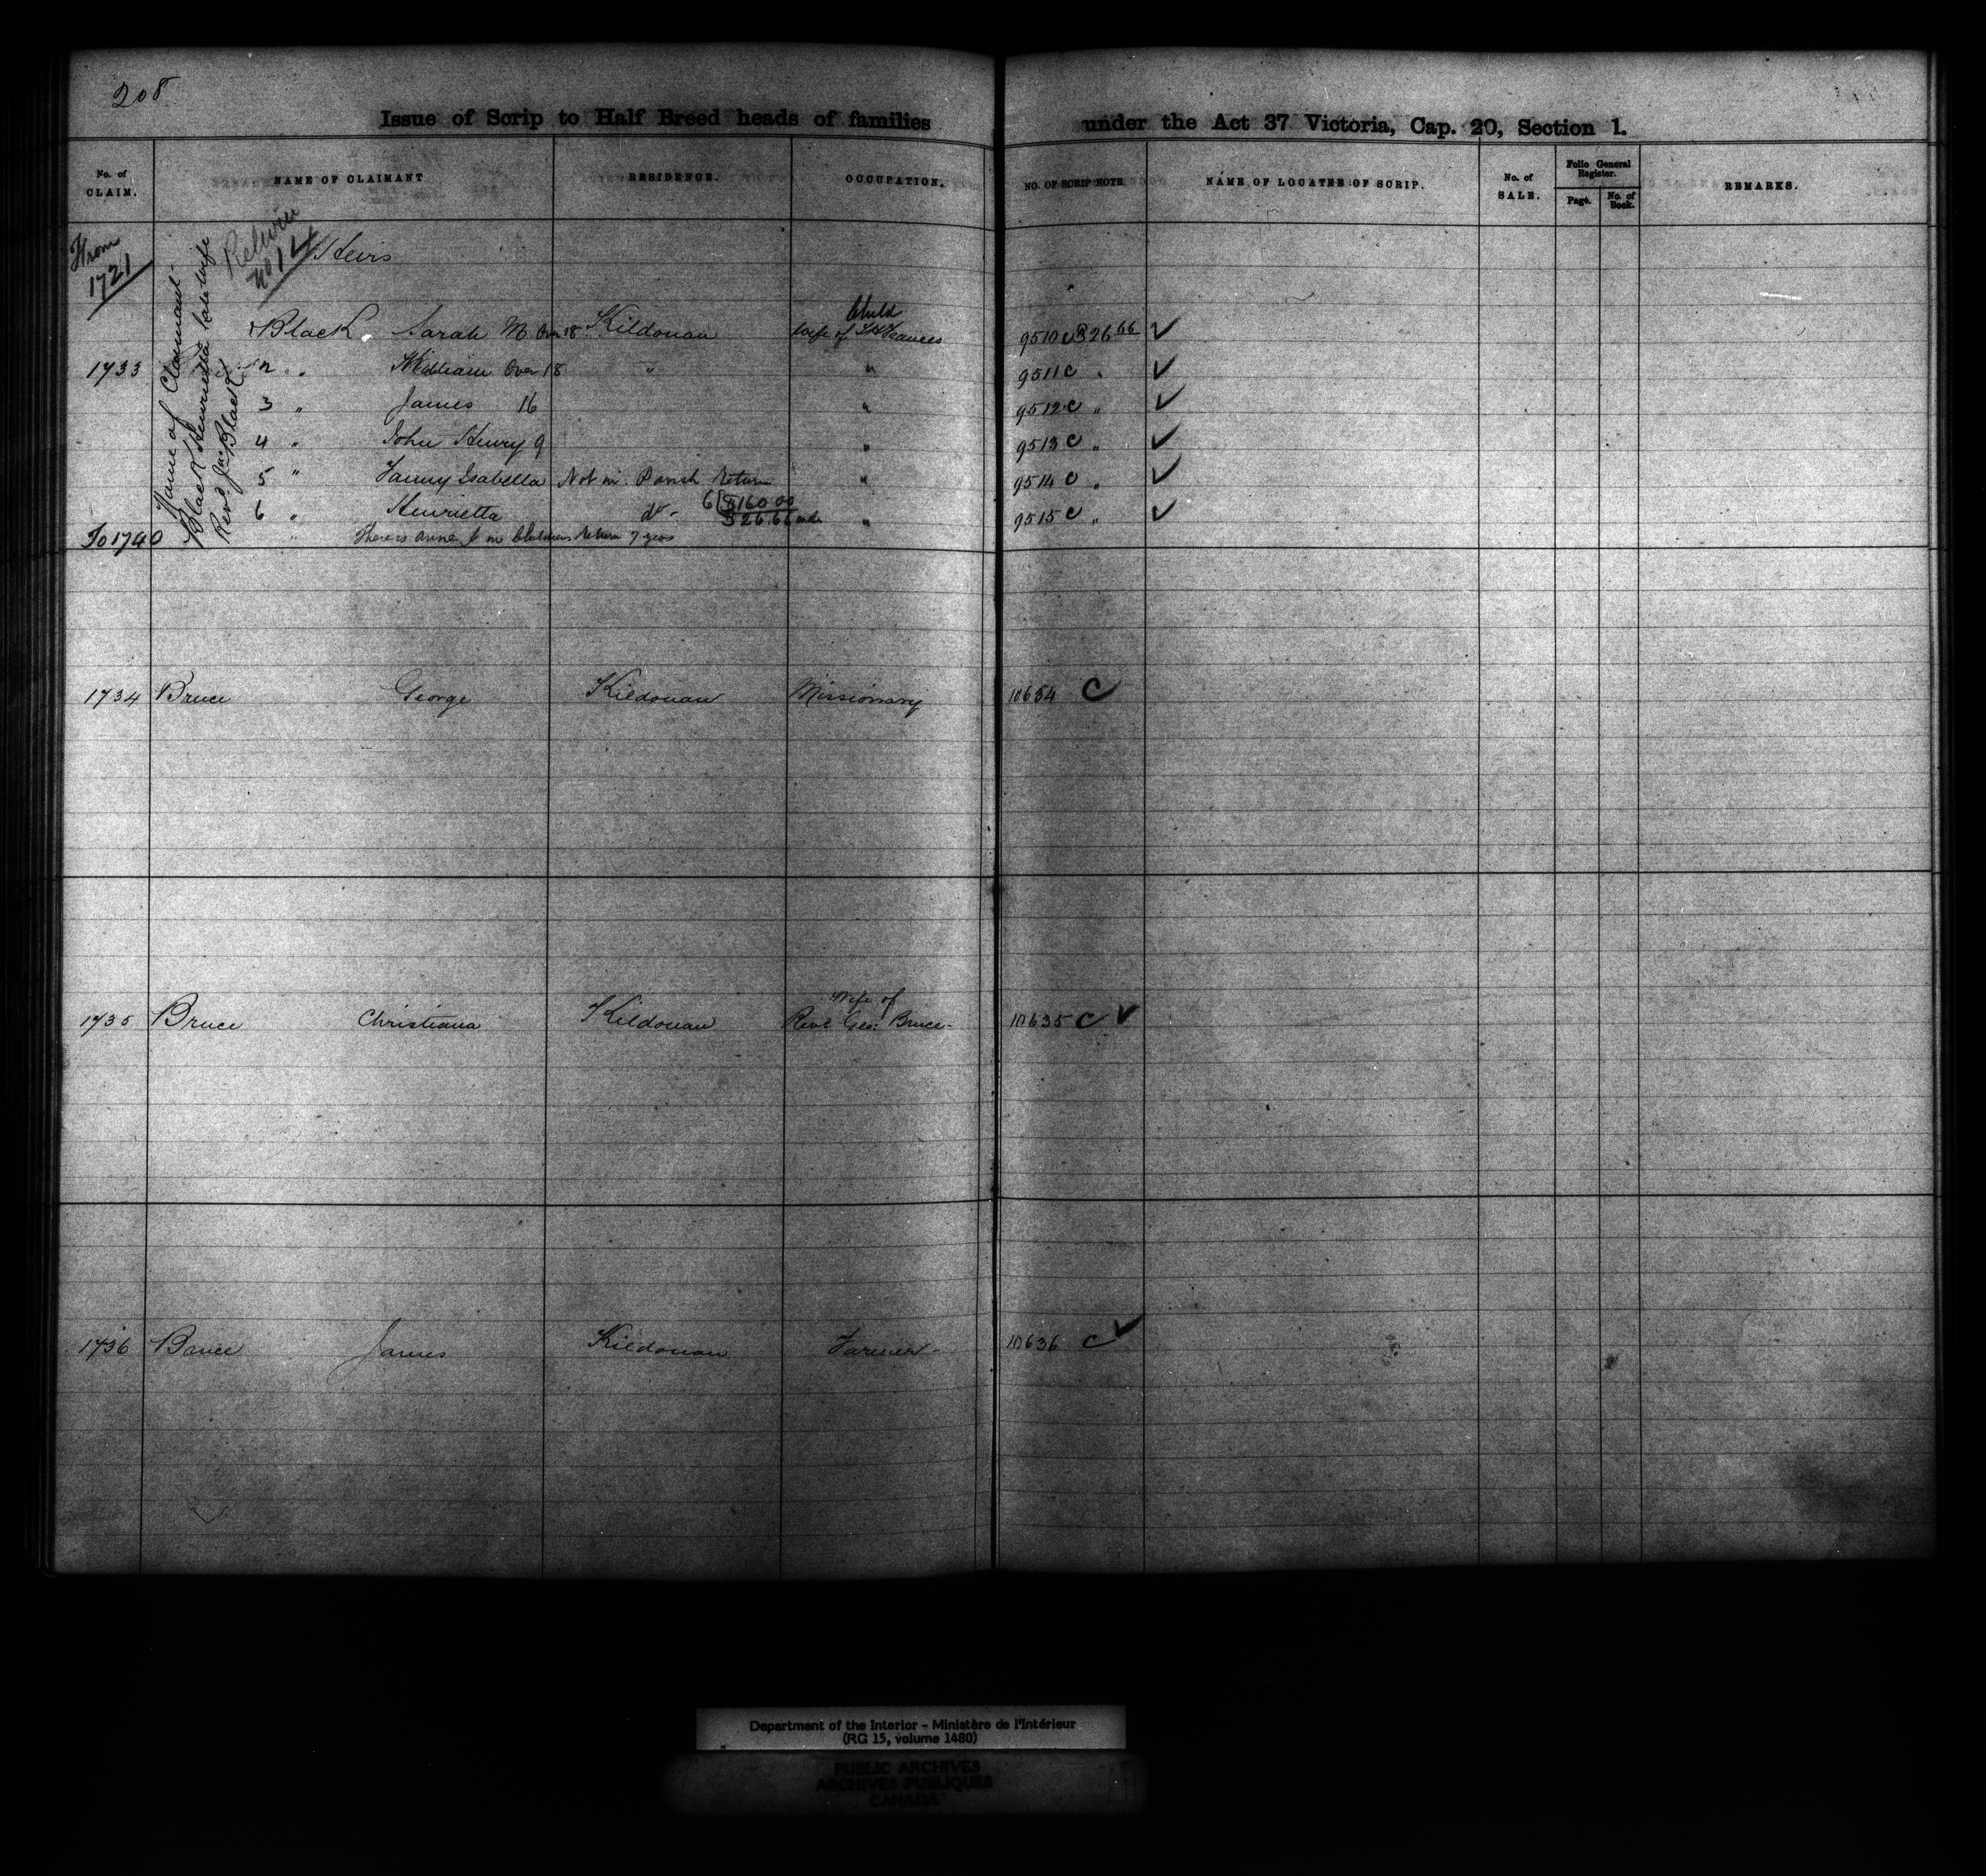 208
Issue of Scrip to Half Breed heads of families under the Act 37 Victoria, Cap. 20, Section 1.
No. of CLAIM. NAME OF CLAIMANT RESIDENCE. OCCUPATION. NO. OF SCRIP NOTE. NAME OF LOCATEE OF SCRIP. No. of SALE. Folio General Register. Page. No. of Book. REMARKS.
From 1721
Name of Claimant
Black Henrietta late wife
Revd. Jno Black
Return
No 14
Heirs
Child
1 Black Sarah M. Over 18 Kildonan wife of 9510 C $26 66 ✓
1733 2 " William Over 18 " " 9511 C " ✓
3 " James 16 " 9512 C " ✓
4 " John Henry 9 " 9513 C " ✓
5 " Fanny Isabella Not in Parish Return " 9514 C " ✓
6 " Henrietta do 6 | $160 00 $26.66 " 9515 C " ✓
To 1740 " There is Anne J in Childrens Return 7 years
1734 Bruce George Kildonan Missionary 10634 C
Wife of
1735 Bruce Christiana Kildonan Revd. Geo: Bruce 10635 C ✓
1736 Bruce James Kildonan Farmer 10636 C ✓
Department of the Interior - Ministère de l'Intérieur
(RG 15, volume 1480)
PUBLIC ARCHIVES
ARCHIVES PUBLIQUES
CANADA